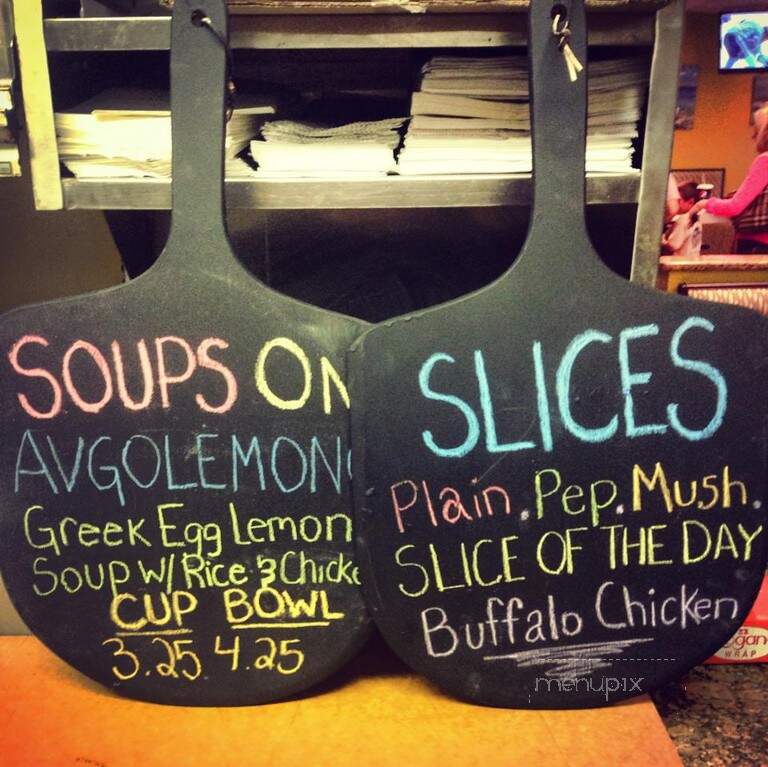 SOUPS ON
AVGOLEMONO
Greek Egg Lemon
Soup W/ Rice & Chicke
CUP BOWL
3.25 4.25
SLICES
Plain. Pep. Mush.
SLICE OF THE DAY
Buffalo Chicken
menupix
WRAP